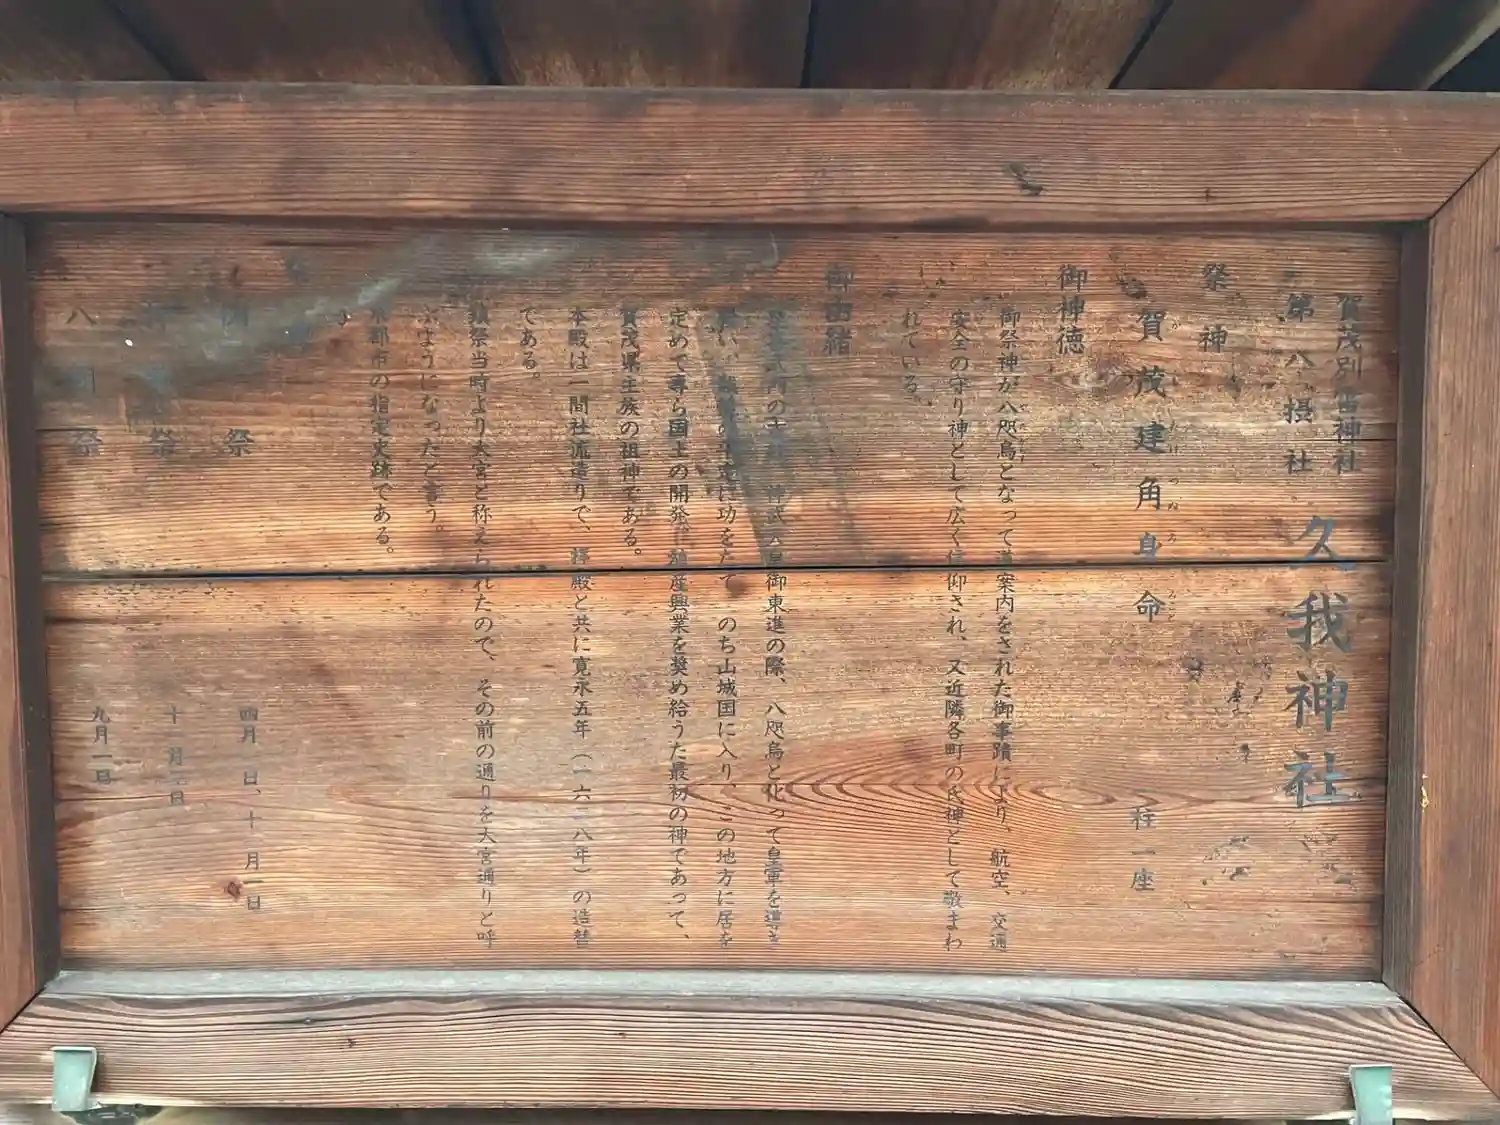 賀茂別雷神社
第八摂社
久我神社
祭神
賀茂建角身命
一柱一座
御神徳
御祭神が八咫烏となって道案内をされた御事蹟により、航空、交通
安全の守り神として広く信仰され、又近隣各町の氏神として敬まわ
れている。
御由緒
神武天皇御東進の際、八咫烏と化って皇軍を導き
功をたて、のち山城国に入り、この地方に居を
定めて専ら国土の開発、殖産興業を奨め給うた最初の神であって、
賀茂県主族の祖神である。
本殿は一間社流造りで、拝殿と共に寛永五年(一六二八年)の造替
である。
鎮祭当時より大宮と称えられたので、その前の通りを大宮通りと呼
ぶようになったと言う。
京都市の指定史跡である。
祭
四月一日、十一月一日
祭
十一月一日
八朔祭
九月一日